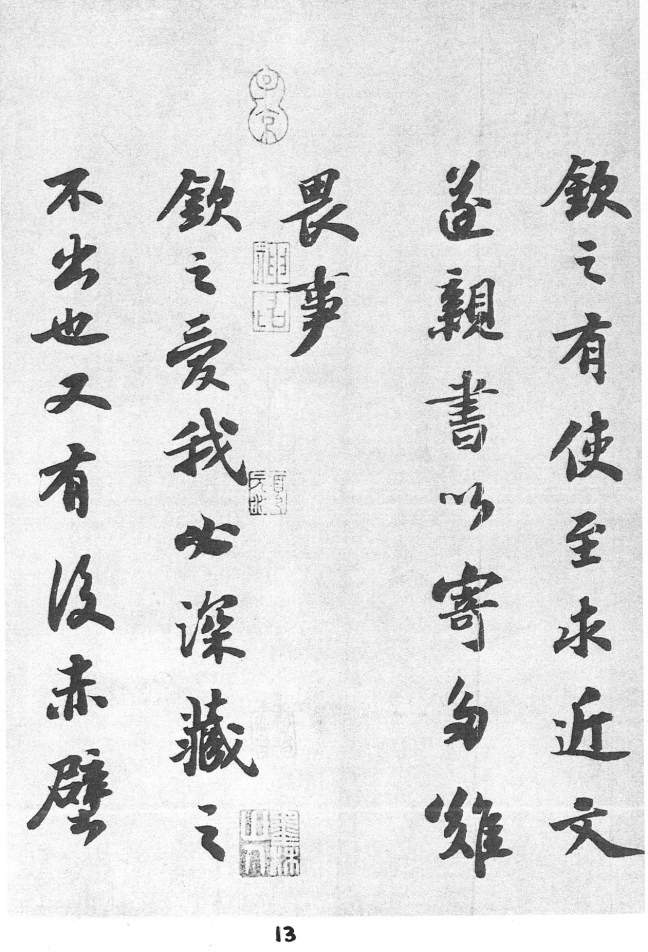 欽之有使至求近文
遂親書以寄多難
畏事
欽之愛我必深藏之
不出也又有後赤壁
13